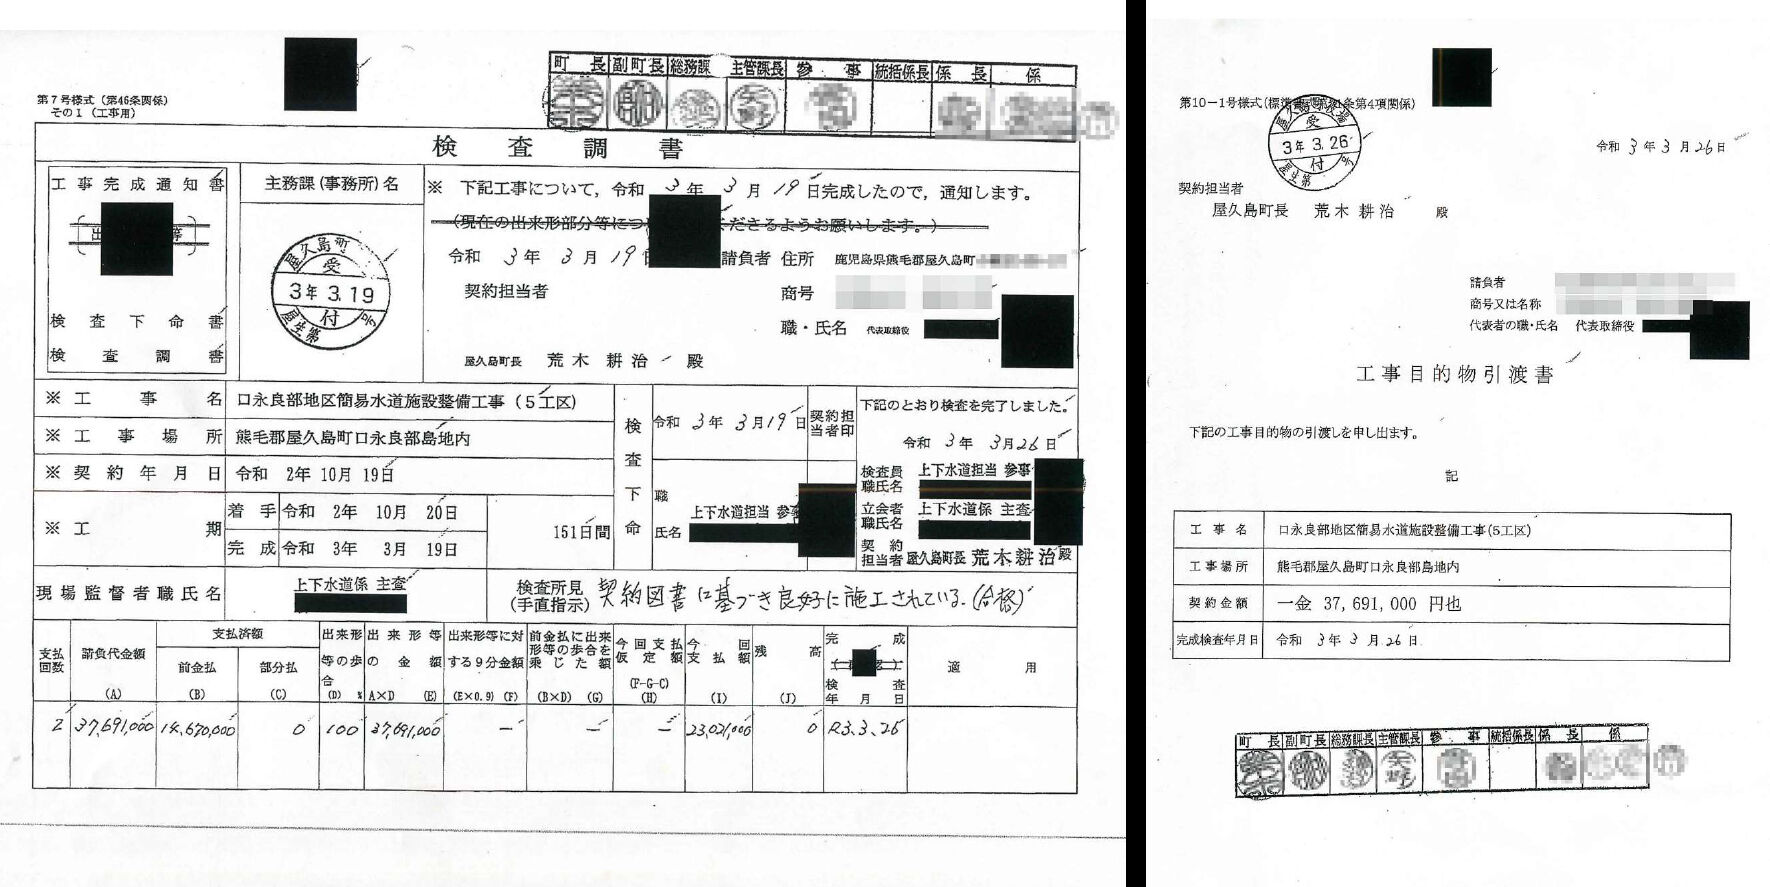 町長 副町長 総務課 主管課長 参事 統括係長 係長 係
第7号様式（第46条関係）
その1（工事用）
検査調書
工事完成通知書
検査下命書
検査調書
主務課(事務所)名
屋久島町
受
3年 3.19
付
屋生第 号
※ 下記工事について，令和 3年 3月 19日完成したので，通知します。
(現在の出来形部分等につ くださるようお願いします。)
令和 3年 3月 19日
請負者 住所 鹿児島県熊毛郡屋久島町
契約担当者
商号
職・氏名 代表取締役
屋久島町長 荒木耕治 殿
※工事名 口永良部地区簡易水道施設整備工事（5工区）
※工事場所 熊毛郡屋久島町口永良部島地内
※契約年月日 令和 2年 10月 19日
※工期
着手 令和 2年 10月 20日
完成 令和 3年 3月 19日
151日間
検査下命
令和 3年 3月19日
契約担当者印
職 上下水道担当 参事
氏名
下記のとおり検査を完了しました。
令和 3年 3月26日
検査員職氏名 上下水道担当 参事
立会者職氏名 上下水道係 主査
契約担当者 屋久島町長 荒木耕治 殿
現場監督者職氏名 上下水道係 主査
検査所見(手直指示) 契約図書に基づき良好に施工されている。(合格)
支払回数 請負代金額 (A) 支払済額 前金払 (B) 部分払 (C) 出来形等の歩合 (D) % 出来形等の金額 A×D (E) 出来形等に対する9分金額 (E×0.9) (F) 前金払に出来形等の歩合を乗じた額 (B×D) (G) 今回支払仮定額 (F-G-C) (H) 今回支払額 (I) 残高 (J) 完成 検査年月日 適用
2 37,691,000 14,670,000 0 100 37,691,000 － － － 23,021,000 0 R3.3.26
第10－1号様式(標準 条第4項関係)
受
3年 3.26
付
屋生第 号
令和 3年 3月 26日
契約担当者
屋久島町長 荒木耕治 殿
請負者
商号又は名称
代表者の職・氏名 代表取締役
工事目的物引渡書
下記の工事目的物の引渡しを申し出ます。
記
工事名 口永良部地区簡易水道施設整備工事(5工区)
工事場所 熊毛郡屋久島町口永良部島地内
契約金額 一金 37,691,000 円也
完成検査年月日 令和 3年 3月 26日
町長 副町長 総務課長 主管課長 参事 統括係長 係長 係